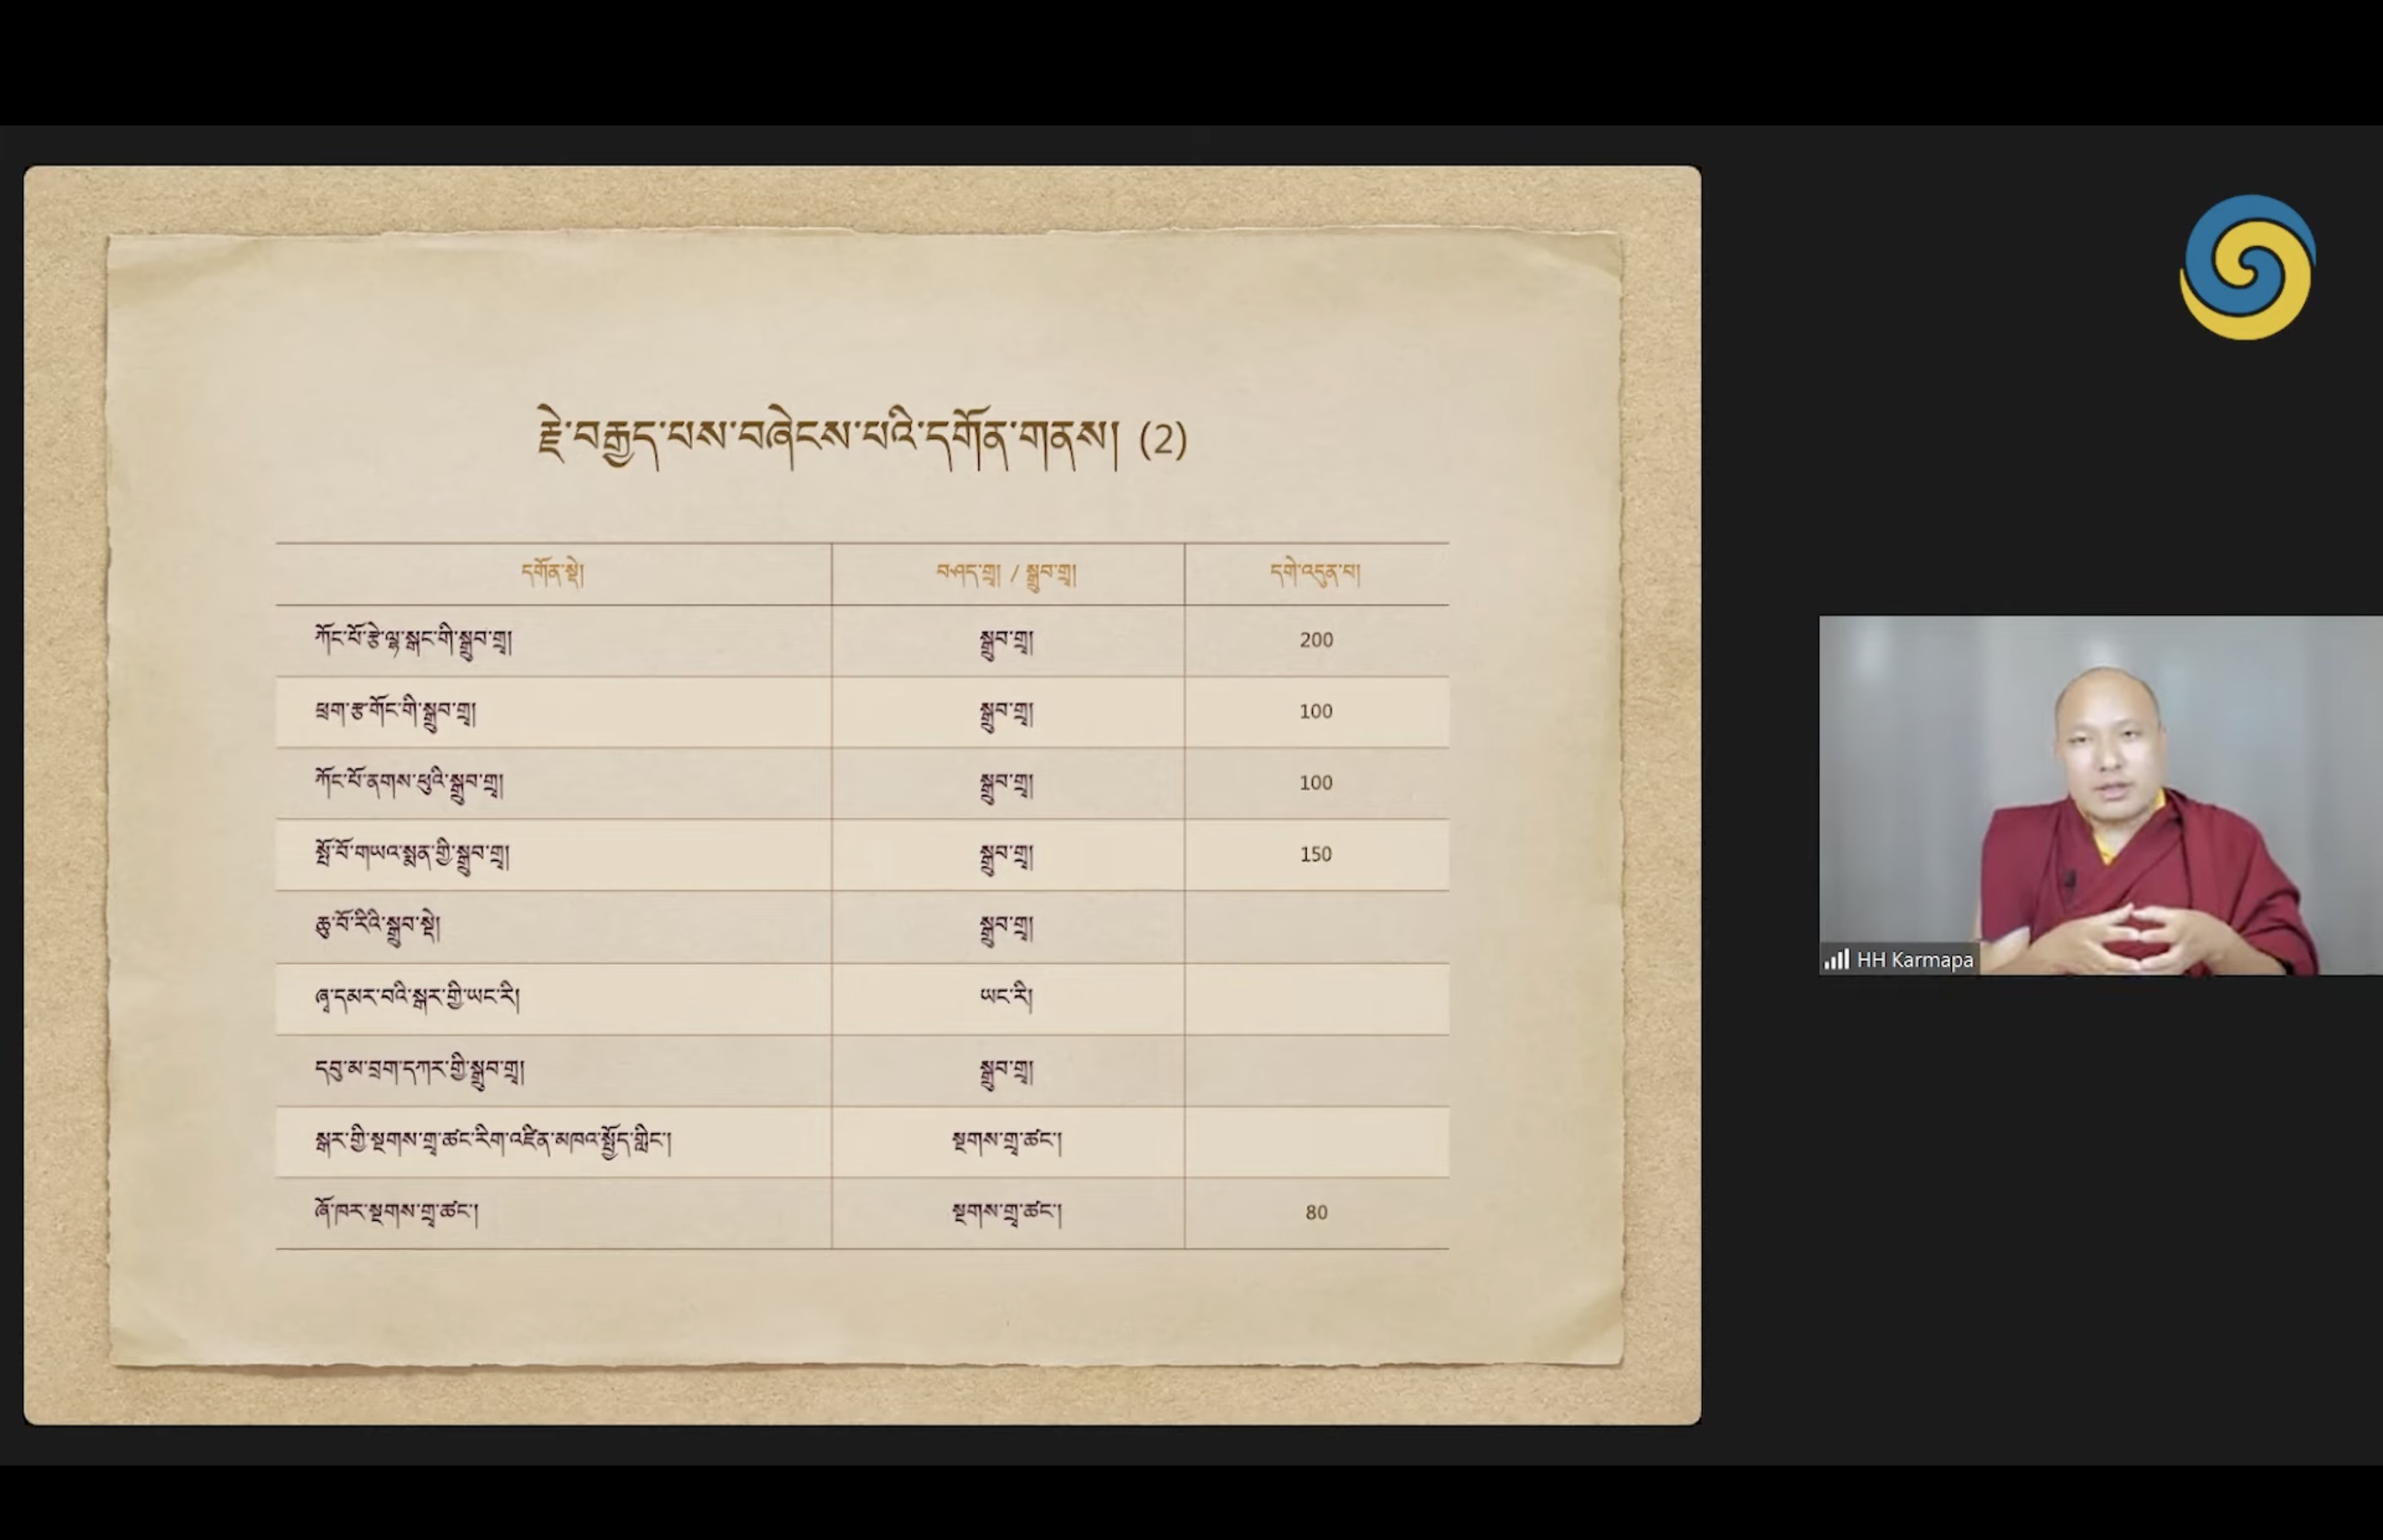 རྗེ་བརྒྱད་པས་བཞེངས་པའི་དགོན་གནས། (2)
དགོན་སྡེ། བཤད་གྲྭ། / སྒྲུབ་གྲྭ། དགེ་འདུན་པ།
ཀོང་པོ་རྩེ་ལྷ་སྒང་གི་སྒྲུབ་གྲྭ། སྒྲུབ་གྲྭ། 200
ཕྲག་རྩ་གོང་གི་སྒྲུབ་གྲྭ། སྒྲུབ་གྲྭ། 100
ཀོང་པོ་ནགས་ཕུའི་སྒྲུབ་གྲྭ། སྒྲུབ་གྲྭ། 100
སྤོ་བོ་གཡའ་སྨན་གྱི་སྒྲུབ་གྲྭ། སྒྲུབ་གྲྭ། 150
ཆུ་བོ་རིའི་སྒྲུབ་སྡེ། སྒྲུབ་གྲྭ།
ཞྭ་དམར་བའི་སྒར་གྱི་ཡང་རི། ཡང་རི།
དབུ་མ་བྲག་དཀར་གྱི་སྒྲུབ་གྲྭ། སྒྲུབ་གྲྭ།
སྒར་གྱི་སྔགས་གྲྭ་ཚང་རིག་འཛིན་མཁའ་སྤྱོད་གླིང་། སྔགས་གྲྭ་ཚང་།
ཞོ་ཁར་སྔགས་གྲྭ་ཚང་། སྔགས་གྲྭ་ཚང་། 80
HH Karmapa